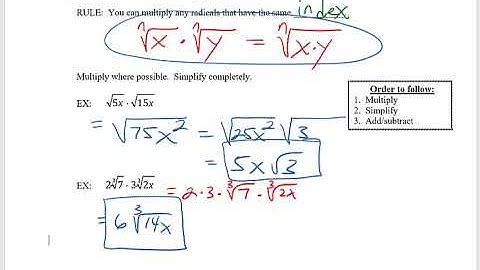 RULE: You can multiply any radicals that have the same index
ⁿ√x · ⁿ√y = ⁿ√(x·y)
Multiply where possible. Simplify completely.
Order to follow:
1. Multiply
2. Simplify
3. Add/subtract
EX: √(5x) · √(15x)
= √(75x²) = √(25x²) √3
= 5x√3
EX: 2∛7 · 3∛(2x) = 2·3·∛7 · ∛(2x)
= 6∛(14x)